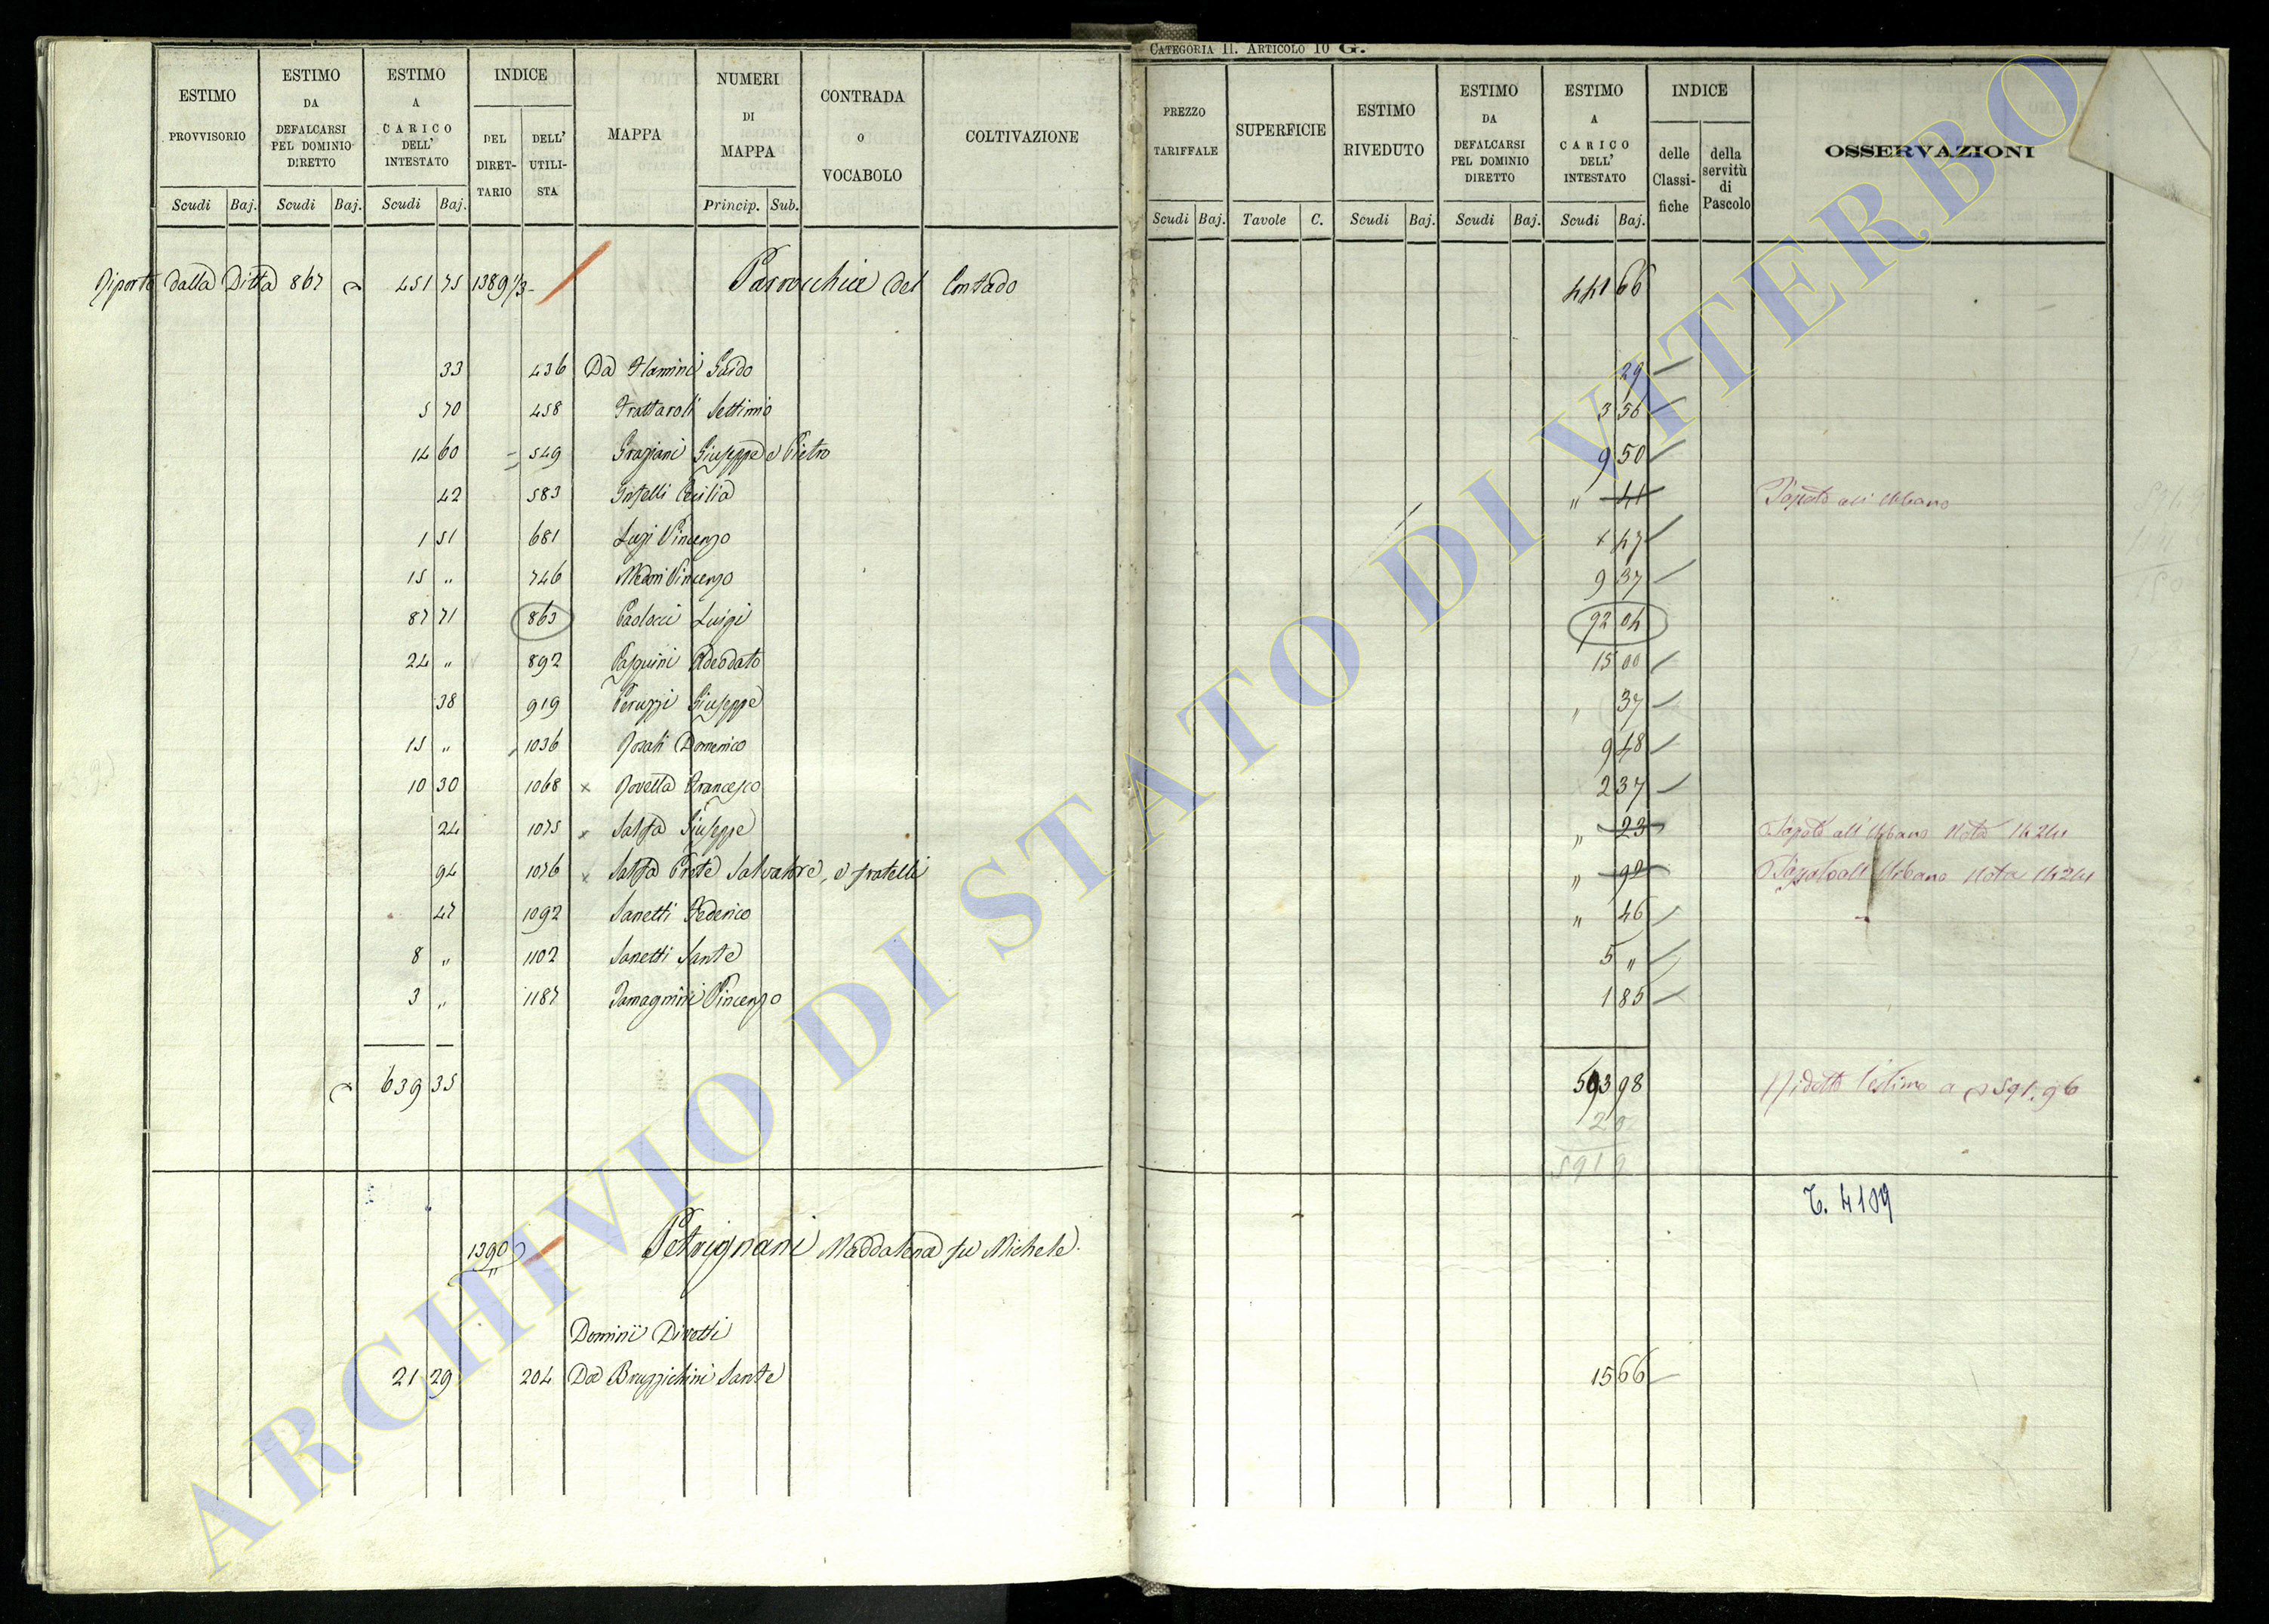 CATEGORIA II. ARTICOLO 10 G.
ESTIMO PROVVISORIO Scudi Baj.
ESTIMO DA DEFALCARSI PEL DOMINIO DIRETTO Scudi Baj.
ESTIMO A CARICO DELL' INTESTATO Scudi Baj.
INDICE DEL DIRET- TARIO DELL' UTILI- STA
MAPPA
NUMERI DI MAPPA Princip. Sub.
CONTRADA o VOCABOLO
COLTIVAZIONE
PREZZO TARIFFALE Scudi Baj.
SUPERFICIE Tavole C.
ESTIMO RIVEDUTO Scudi Baj.
ESTIMO DA DEFALCARSI PEL DOMINIO DIRETTO Scudi Baj.
ESTIMO A CARICO DELL' INTESTATO Scudi Baj.
INDICE delle Classi- fiche della servitù di Pascolo
OSSERVAZIONI
Riporto dalla Ditta 867 451 75 1389 1/3 Parrocchia del Contado 441 66
33 436 Da Flamini Guido 29
5 70 458 Frattaroli Settimio 3 56
14 60 549 Graziani Giuseppe e Pietro 9 50
42 583 Cecilia " 41 all' Urbano
1 51 681 Luzi Vincenzo 47
15 " 746 Medori Vincenzo 9 37
87 71 863 Paolocci Luigi 92 04
24 " 892 Pasquini Adeodato 15 00
38 919 Peruzzi Giuseppe " 37
15 " 1036 Rosati Domenico 9 48
10 30 1068 x Rovetta Francesco 2 37
24 1075 x Salza Giuseppe " 23 all' Urbano Nota
94 1076 x Salza Prete Salvatore, e fratelli " 92 all' Urbano Nota
47 1092 Sanetti Federico " 46
8 " 1102 Sanetti Sante 5 "
3 " 1187 Tamagnini Vincenzo 1 85
639 35 593 98 Ridotto l'estimo a 591.96
T. 4109
1390 Petrignani Maddalena fu Michele.
Dominii Diretti
21 29 204 Da Bruzzichini Sante 15 66
ARCHIVIO DI STATO DI VITERBO